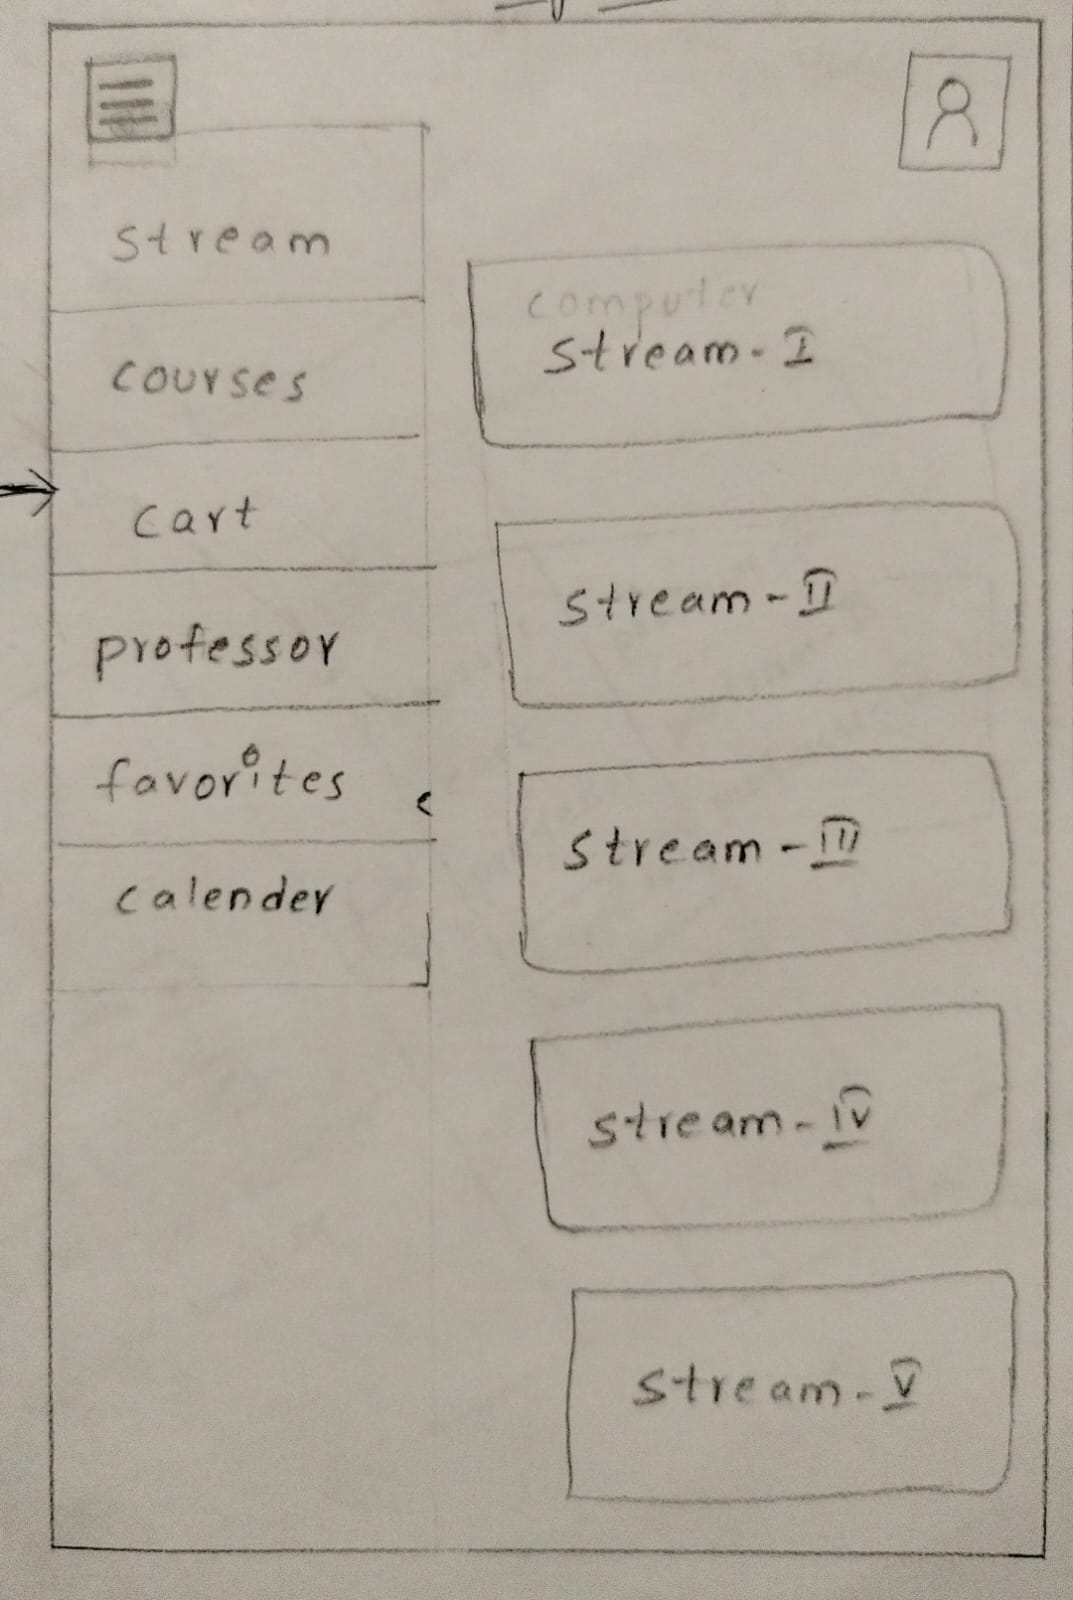 stream
courses
cart
professor
favorites
calender
computer
stream - I
stream - II
stream - III
stream - IV
stream - V